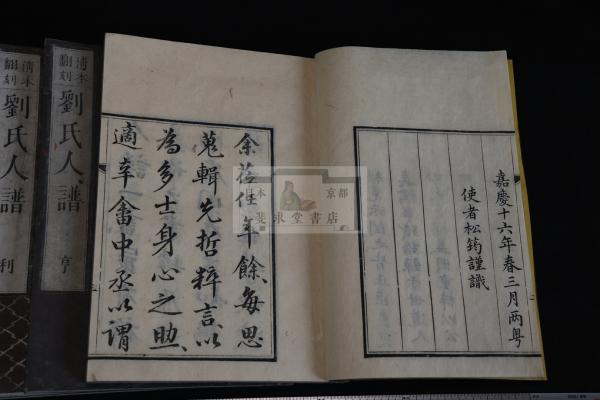 嘉慶十六年春三月两粤
使者松筠謹識
余莅任年餘每思
蒐輯先哲粹言以
為多士身心之助
適辛禽中丞以謂
清本
翻刻
劉氏人譜
亨
清本
翻刻
劉氏人譜
利
日本
京都
斐求堂書店